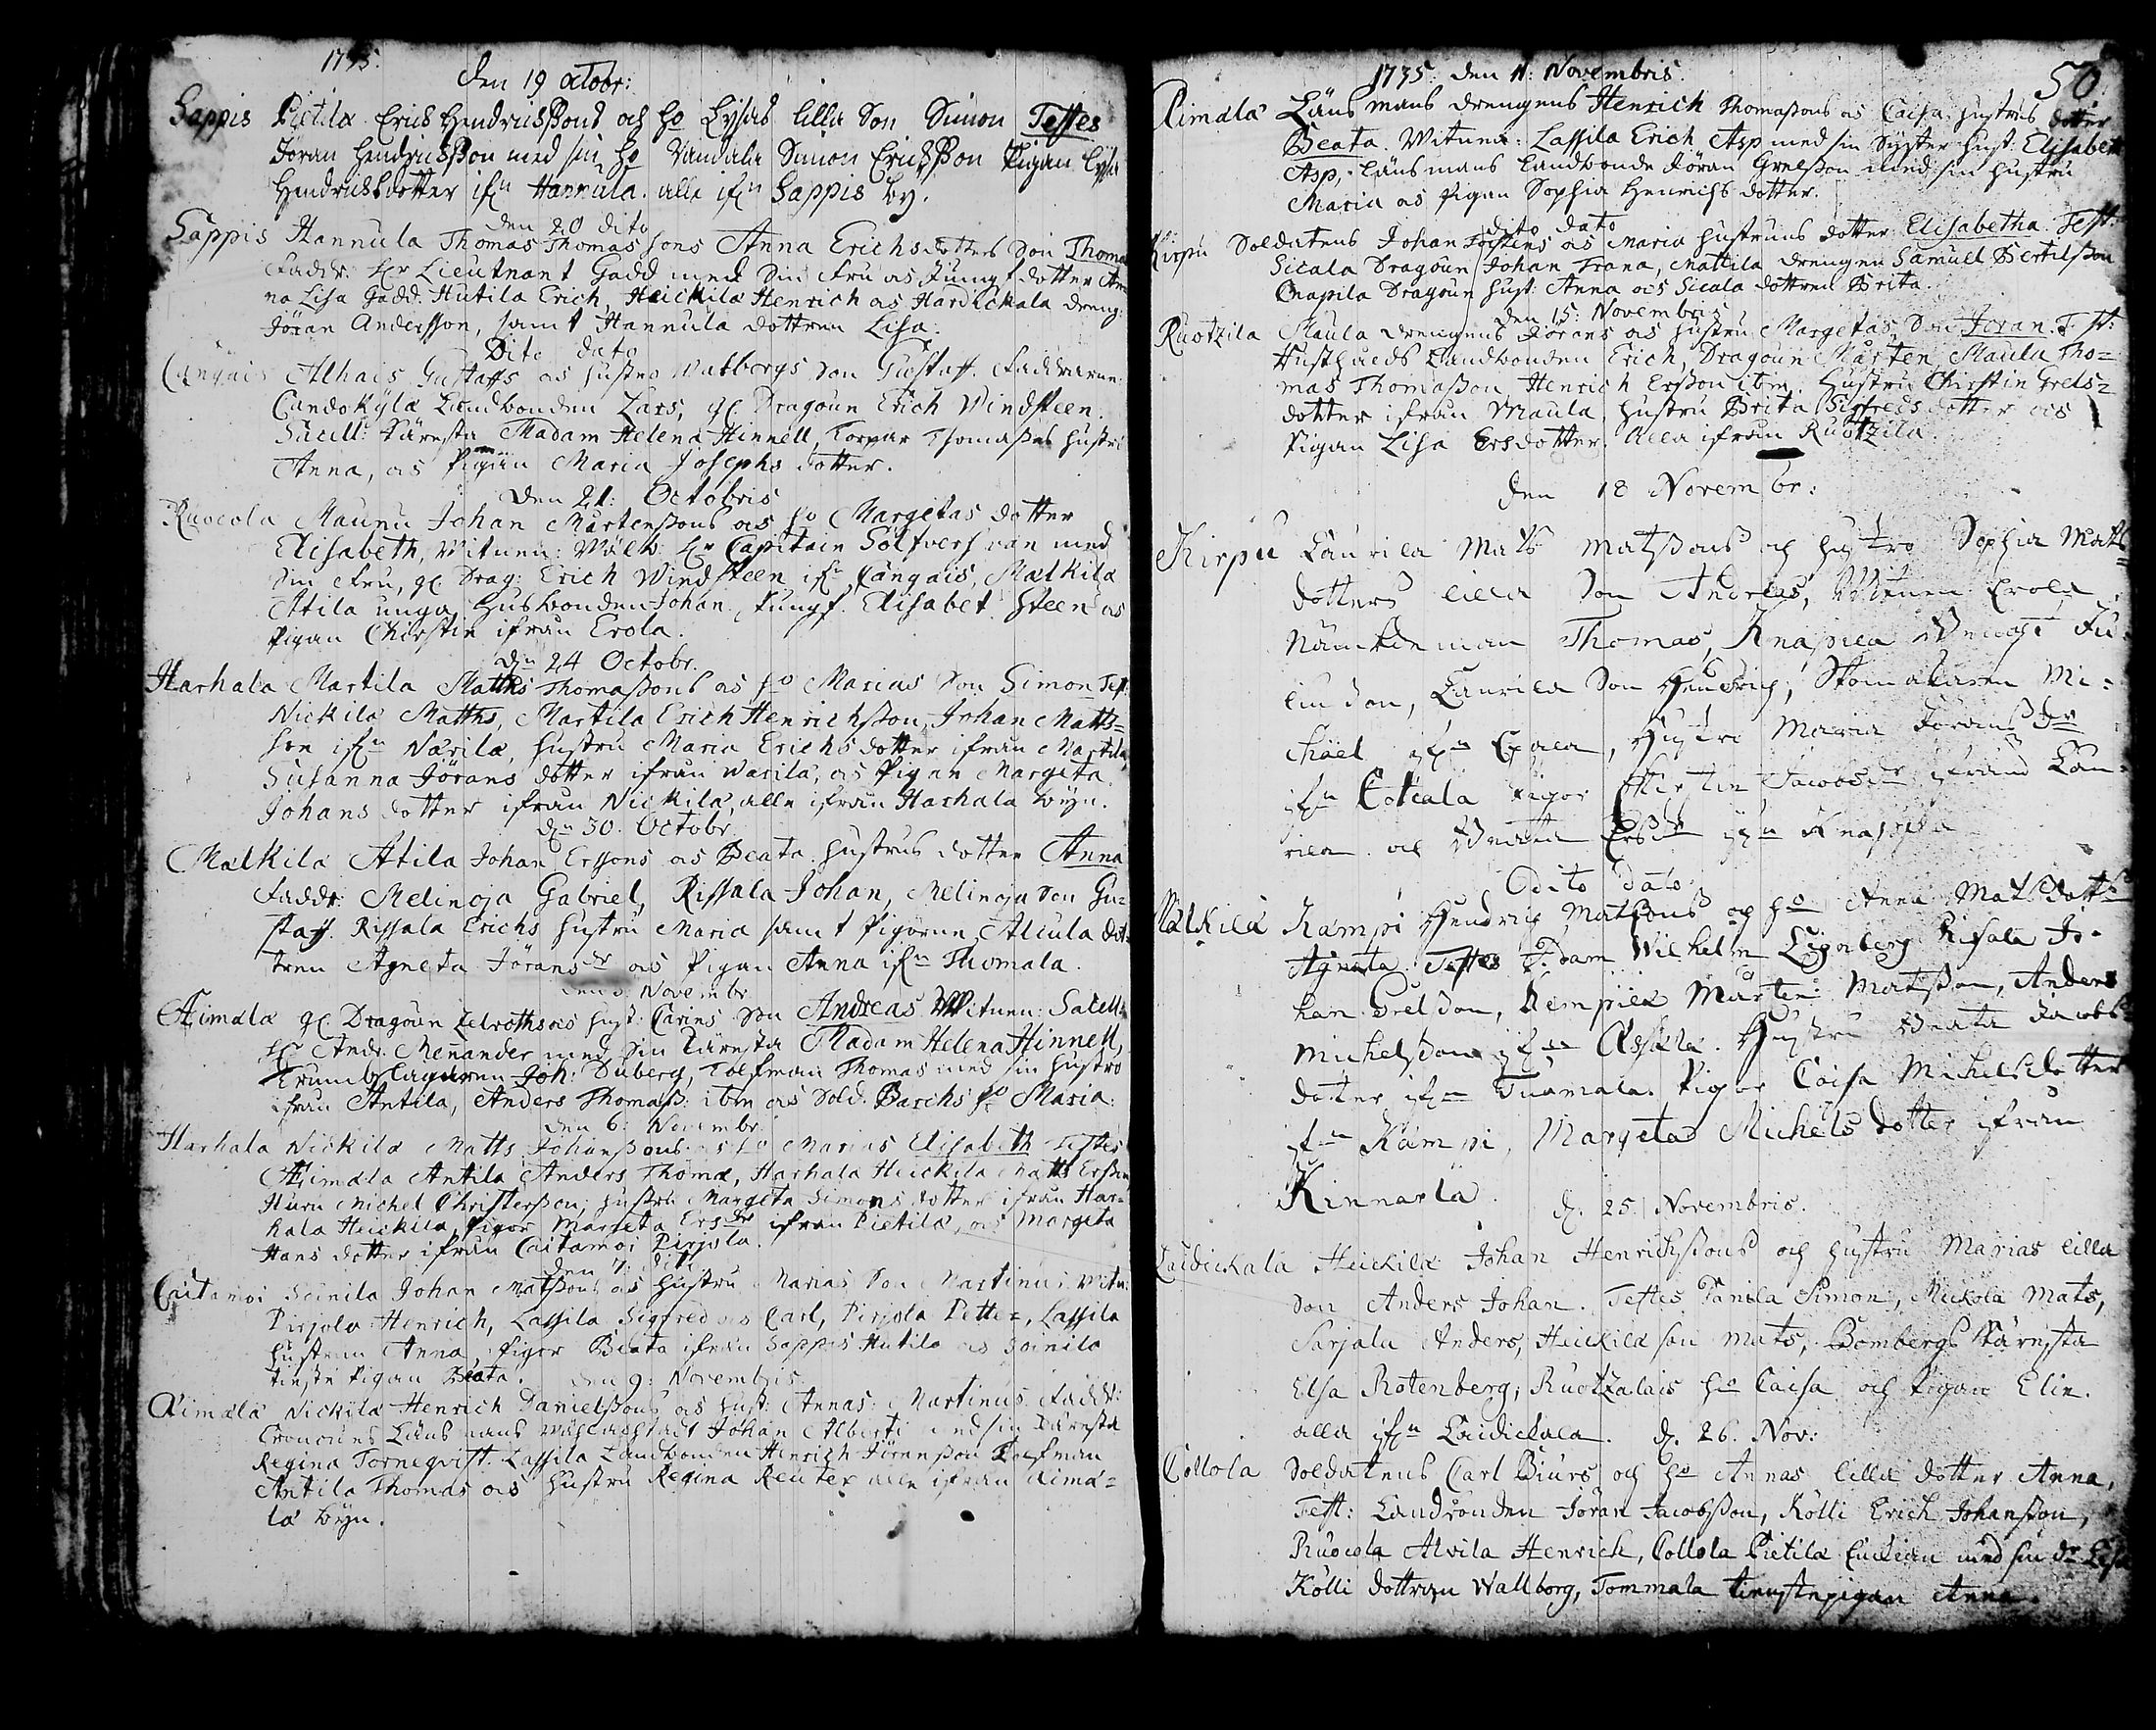 1735.
den 19 octobr:
Sappis Pietilä Erick Hendrickßons och ho Lysas lilla Son Simon Testes
Joran Hendricksson med sin ho Vamala Simon Ericksson Pigan Lysa
Hendricksdotter ifn Hannula. alle ifn Sappis by.
den 20 dito
Sappis Hannula Thomas Thomas sons Anna Erichsdotters Son Thomas
Faddr: Hr Lieutnant Gadd med Sin Fru as Jungf dotter An=
na Lisa Gadd. Hutila Erich, Heickilä Henrich as Harickala dreng:
Jöran Andersson, samt Hannula dottren Lisa.
Dito dato
Cangais Alhais Gustaffs as hustro Valbergs Son Gustaff. Faddrarne
Cundokylä Landbonden Lars, gl Dragoun Erich Windsteen.
Sacell: Käresta Madam Helena Hinnell, Torpar Thomaßes hustru
Anna, as Pigan Maria Josephs dotter.
den 21: Octobris
Ruocola Maunu Johan Mårtenßons as ho Margetas dotter
Elisabeth, Vitnen: Wälb. Hr Capitain Sölfversvan med
Sin Fru, gl Drag: Erich Windsteen ifn Cangais, Mälkilä
Atila unga Husbonden Johan, Jungf. Elisabet Steen as
Pigan Chirstin ifrån Erola.
dn 24 Octobr.
Harhala Martila Matths Thomaßons as ho Marias Son Simon Test:
Nickilä Matths, Martila Erich Henrichßon, Johan Matts=
son ifn Närilä, hustru Maria Erichs dotter ifrån Martila,
Susanna Jörans dotter ifrån Warila, as Pigan Margeta
Johans dotter ifrån Nickilä, alle ifrån Harhala byn.
dn 30. Octobr.
Mälkilä Atila Johan Erssons as Beata hustrus dotter Anna
Faddr: Melinoja Gabriel, Rissala Johan, Melinoja Son Gu=
staff. Rissala Erichs hustru Maria samt Pigorne Alcula dot=
tren Agneta Jörans dr as Pigan Anna ifn Thomala.
den Novembr
Aimälä gl. Dragoun Zelroths as hust: Carins Son Andreas Witnen: Sacell:
Hr Andr. Menander med Sin Käresta Madam Helena Hinnell,
Trumbslagaren Joh: Duberg, Tolfman Thomas med sin hustro
ifrån Antila, Anders Thomaß: ibm as Sold. Barchs ho Maria.
den 6: Novembr
Harhala Nickilä Matts Johanßons as ho Marias Elisabeth Testes
Aimälä Antila Anders Thomæ, Harhala Heickilä Matts Erßon,
Huru Michel Christerßon, hustru Margeta Simons dotter ifrån Har=
hala Heickilä, Pigor Margeta Ersdr ifrån Pietilä, as Margeta
Hans dotter ifrån Caitamoi Pirjola.
den 7: dito
Caitamoi Seinilä Johan Matßons as hustru Marias Son Martinus. Vitn:
Pirjola Henrich, Lassila Sigfred as Carl, Pirjola Petter, Lassila
hustrun Anna, Pigor Beata ifrån Sappis Hutila as Soinila
tienste Pigan Beata. den 9: Novembris
Aimälä Nickilä Henrich Danielßons as hust: Annas: Martinus Faddr:
Cronones Länsmans Wälachtadt Johan Alberti med sin Käresta
Regina Tornegvist. Lassila Landbonden Henrich Jöranßon Tolfman
Antila Thomas as hustru Regina Reuter alle ifrån Aimä=
lä byn.
50.
1735. den 11: Novembris.
Aimälä Länsmans drengens Henrich Thomaßons as Caisa hustrus dotter
Beata. Witnen: Lassila Erich Asp med sin Syster hust: Elisabeth
Asp, Länsmans Landbonde Jöran Grelsson med sin hustru
Maria as Pigan Sophia Henrichs dotter.
dito dato
Kirpu Soldatens Johan as Maria hustruns dotter Elisabetha. Test:
Sicala Dragoun Johan Trana, Mattila drengen Samuel Bertilsson
Cnapila Dragoun hust: Anna as Sicala dottren Brita.
den 15: Novembris
Ruotzila Maula drengens Jörans as hustru Margetas Son Joran. Test:
Husthueds Landbonden Erich, Dragoun Mårten, Maula Tho=
mas Thomaßon, Henrich Erßon ibm. Hustru Chirstin Grels=
dotter ifrån Maula, hustru Brita Sigfreds dotter as
Pigan Lisa Ersdotter. Alla ifrån Ruotzila
den 18 Novembr:
Kirpu Laurila Mats Matßons och hustro Sophia Mats
dotters lilla Son Andreas, Witnen Erola
Nämdeman Thomas, Knapila Ju=
lin don, Laurila Son Hendrig, Skomakaren Mi=
kael ifn Cojala, Hustro Maria Joransdr
ifn Cokala Pigor Kirstin Jacobsdr ifrånd Lau=
rila och Beata Ersdr ifn Knapila
Dito dato
Mälkilä Kämpi Hendrig Matßons og ho Anna Mats dotter
Agneta. Testes Wilhelm Rißala Jo=
han Grelsson, Kempilä Mårten Matßon, Anders
Michelßon ifn Assala. Hustru Beata Jacobs
dotter ifn Tuomala. Pigor Caisa Michelsdotter
ifn Kämpi, Margeta Michels dotter ifrån
Kinnarla. d. 25 Novembris.
Laidickala Heickilä Johan Henrichßons och hustru Marias lilla
Son Anders Johan. Testes Tanila Simon, Mickola Mats,
Sarjala Anders, Heickilä son Mats, Bombergs Käresta
Elsa Rotenberg, Ruotzalais ho Caisa och Pigan Elin.
alla ifn Laidickala. d. 26. Nov:
Collola Soldatens Carl Biurs och ho Annas lilla dotter Anna,
Test: Landbonden Jöran Jacobßon, Kölli Erich Johanßon,
Ruocola Alvila Henrich, Collola Pietilä Enckian med sin dr Lisa
Kölli dottran Wallborg, Tommala tienstepigan Anna.